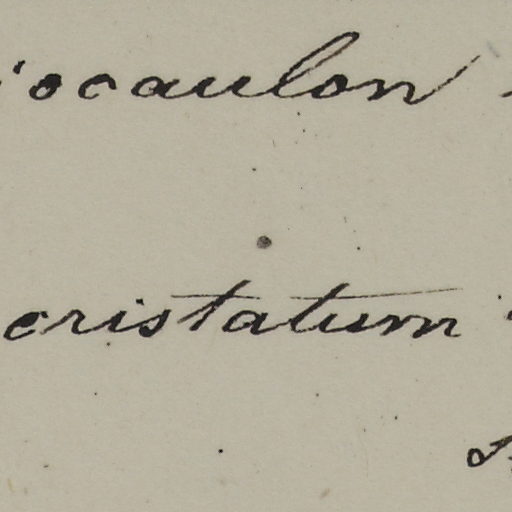 iocaulon
cristatum